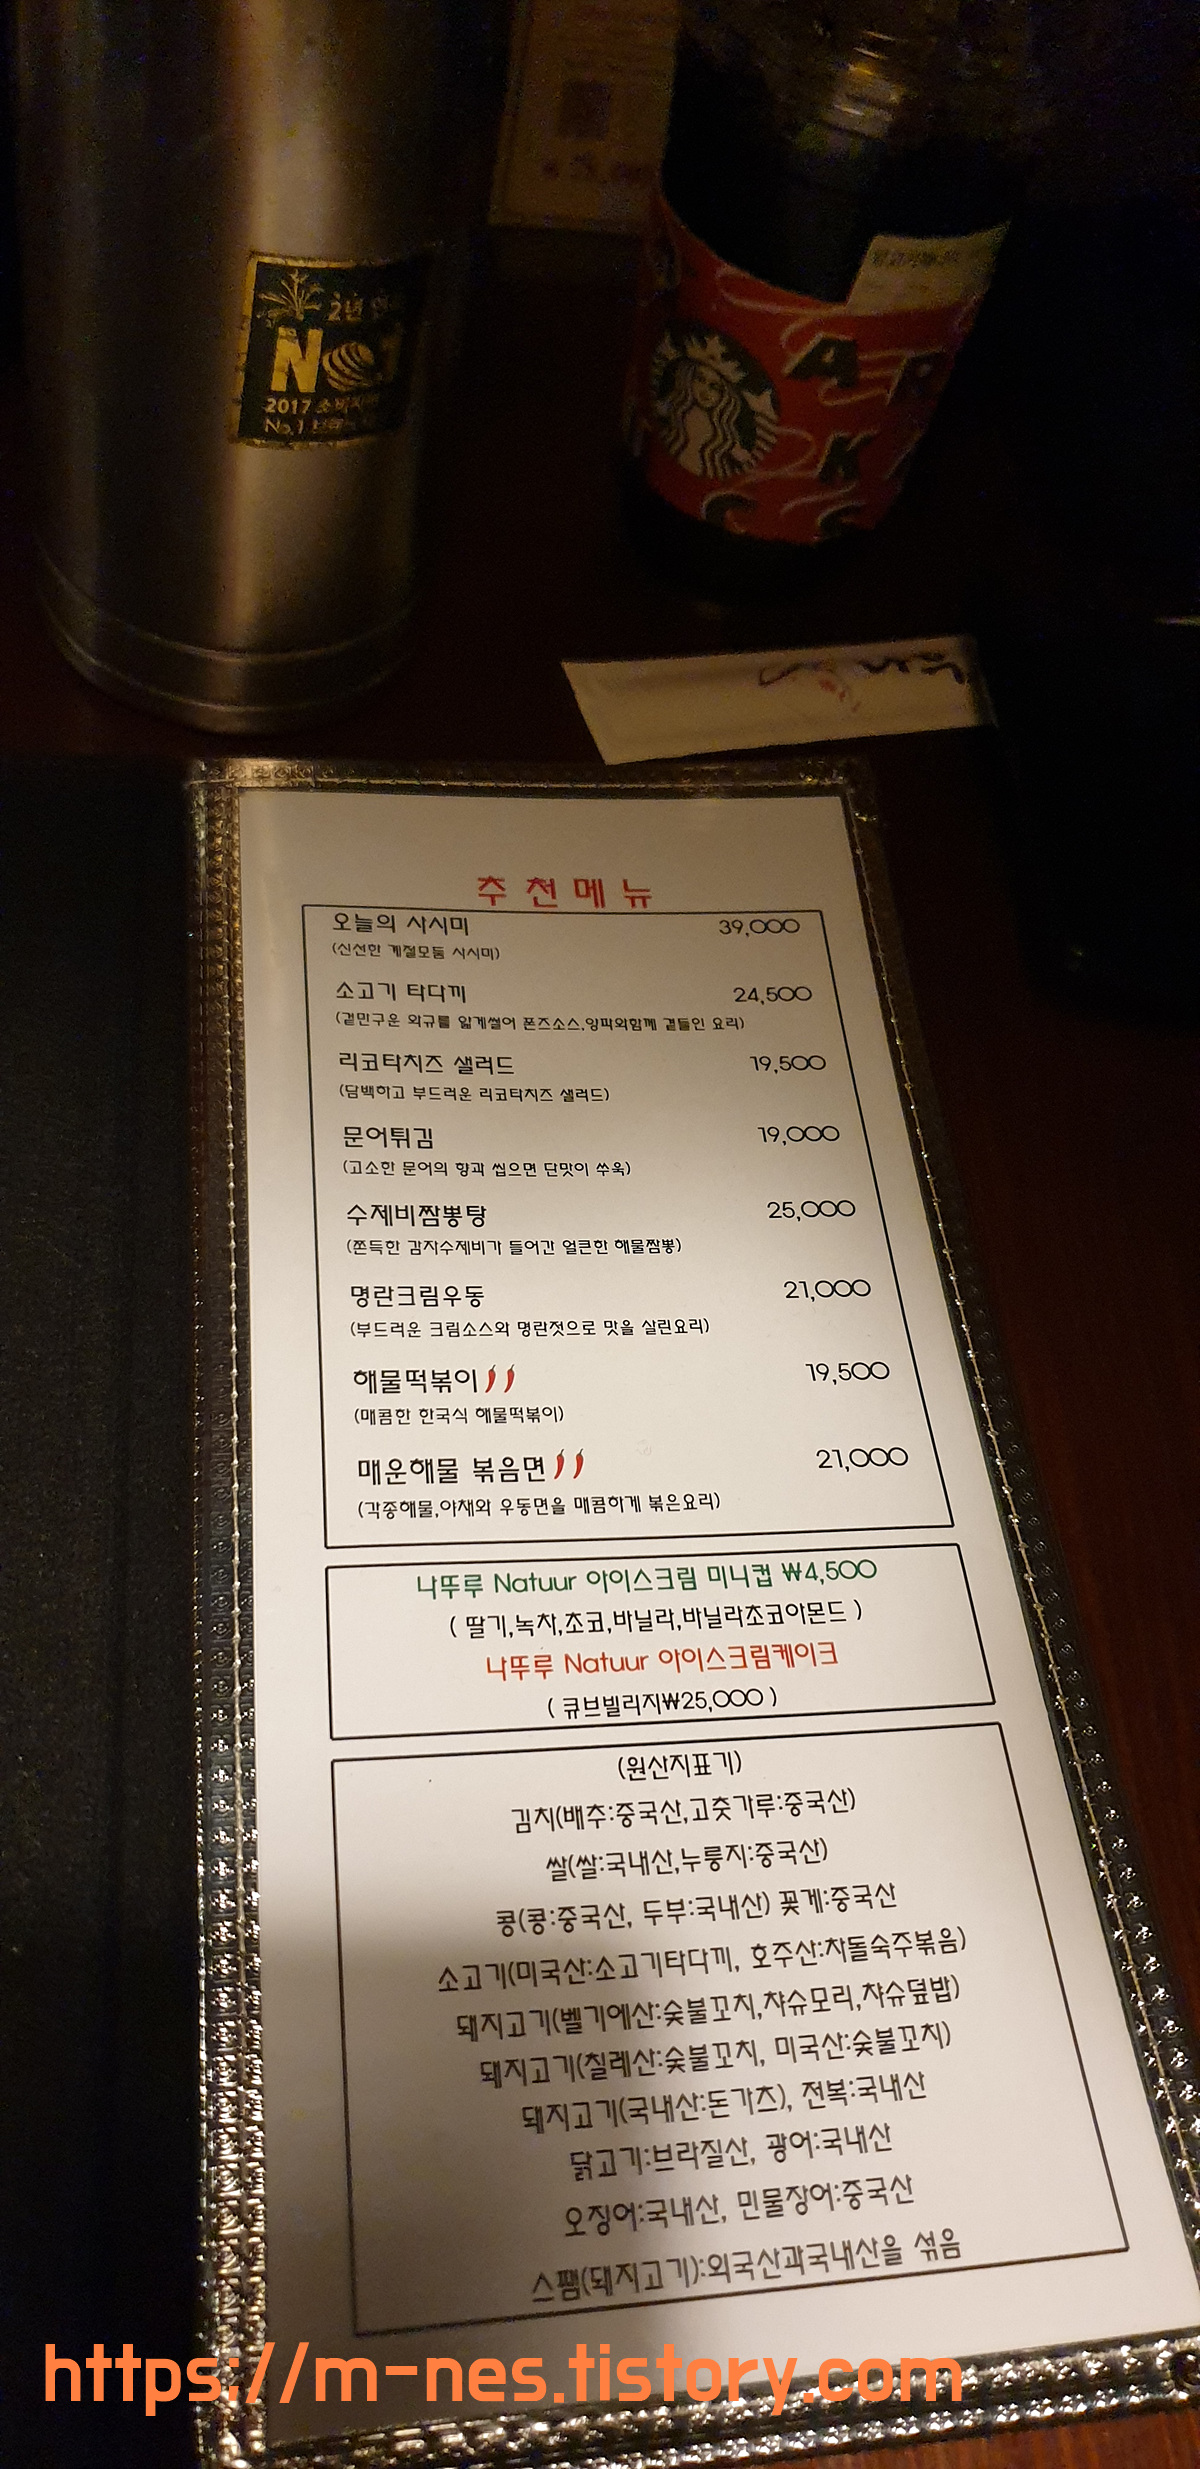 2년
No.1
2017
No.1
추천메뉴
오늘의 사시미 39,000
(신선한 계절모둠 사시미)
소고기 타다끼 24,500
(겉만구운 외규를 얇게썰어 폰즈소스,양파와함께 곁들인 요리)
리코타치즈 샐러드 19,500
(담백하고 부드러운 리코타치즈 샐러드)
문어튀김 19,000
(고소한 문어의 향과 씹으면 단맛이 쑤욱)
수제비짬뽕탕 25,000
(쫀득한 감자수제비가 들어간 얼큰한 해물짬뽕)
명란크림우동 21,000
(부드러운 크림소스와 명란젓으로 맛을 살린요리)
해물떡볶이 19,500
(매콤한 한국식 해물떡볶이)
매운해물 볶음면 21,000
(각종해물,야채와 우동면을 매콤하게 볶은요리)
나뚜루 Natuur 아이스크림 미니컵 ₩4,500
( 딸기,녹차,초코,바닐라,바닐라초코아몬드 )
나뚜루 Natuur 아이스크림케이크
( 큐브빌리지₩25,000 )
(원산지표기)
김치(배추:중국산,고춧가루:중국산)
쌀(쌀:국내산,누룽지:중국산)
콩(콩:중국산, 두부:국내산) 꽃게:중국산
소고기(미국산:소고기타다끼, 호주산:차돌숙주볶음)
돼지고기(벨기에산:숯불꼬치,챠슈모리,챠슈덮밥)
돼지고기(칠레산:숯불꼬치, 미국산:숯불꼬치)
돼지고기(국내산:돈가츠), 전복:국내산
닭고기:브라질산, 광어:국내산
오징어:국내산, 민물장어:중국산
스팸(돼지고기):외국산과국내산을 섞음
https://m-nes.tistory.com